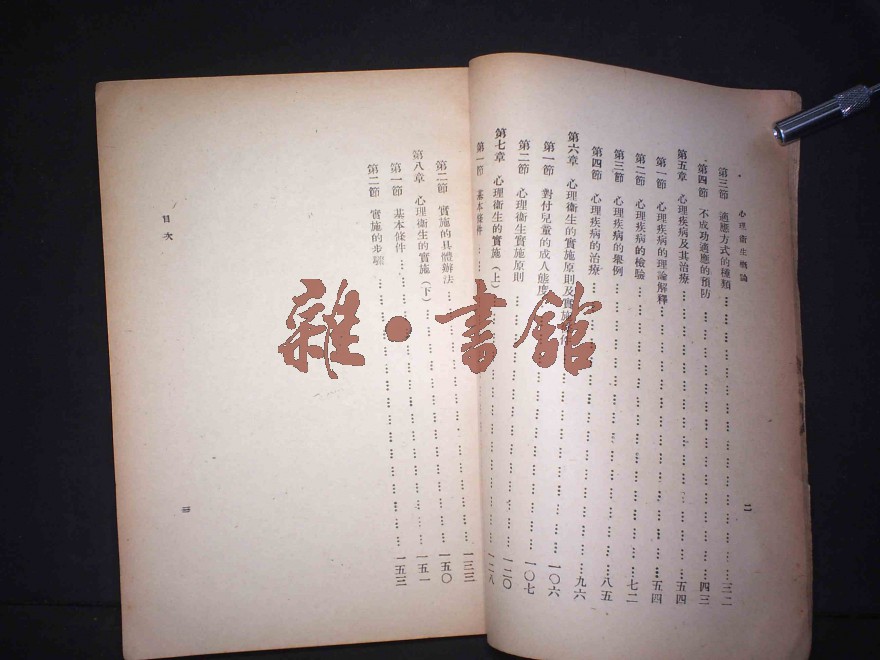 心理衞生概論
二
第三節 適應方式的種類 …… 三二
第四節 不成功適應的預防 …… 四三
第五章 心理疾病及其治療 …… 五四
第一節 心理疾病的理論解釋 …… 五四
第二節 心理疾病的檢驗 …… 七二
第三節 心理疾病的舉例 …… 八五
第四節 心理疾病的治療 …… 九六
第六章 心理衞生的實施原則及實施 …… 一〇六
第一節 對付兒童的成人態度 …… 一〇七
第二節 心理衞生實施原則 …… 一二〇
第七章 心理衞生的實施(上) …… 一二八
第一節 基本條件 ……
第二節 實施的具體辦法 …… 一三三
第八章 心理衞生的實施(下) …… 一五〇
第一節 基本條件 …… 一五一
第二節 實施的步驟 …… 一五三
目次
三
雜·書館